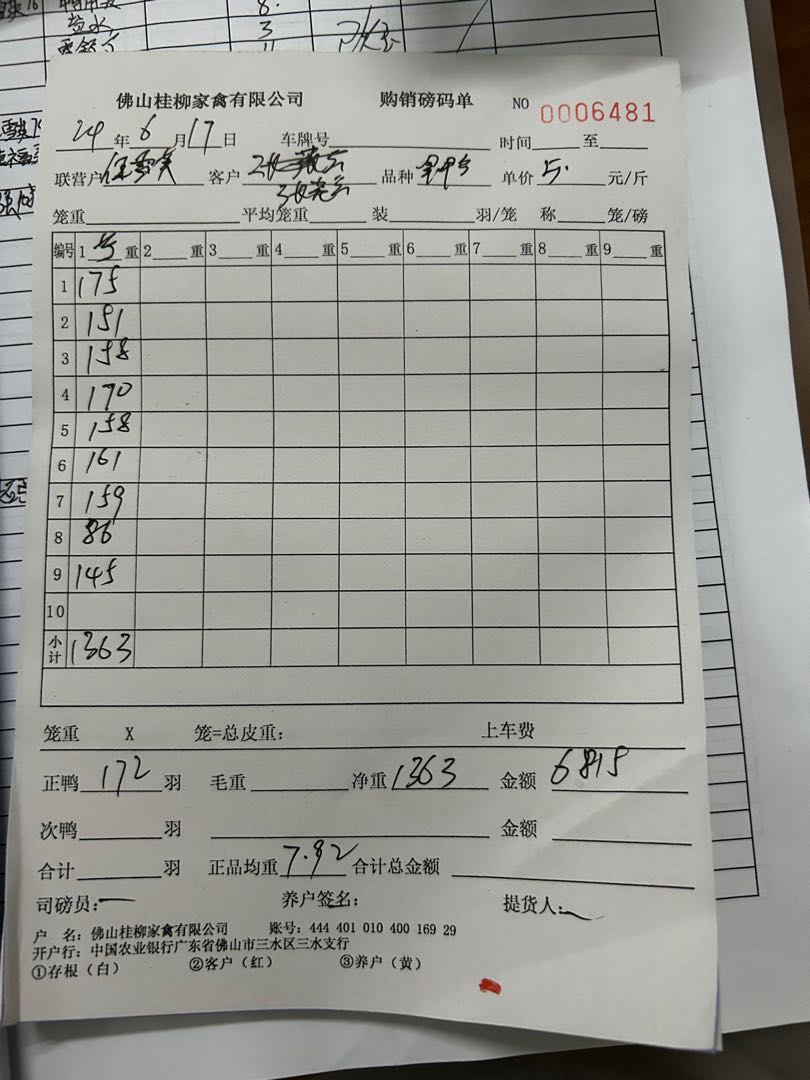 佛山桂柳家禽有限公司 购销磅码单 NO 0006481
24年6月17日 车牌号 时间 至
联营户 客户 品种 单价5.元/斤
笼重 平均笼重 装 羽/笼 称 笼/磅
编号 1号重 2 重 3 重 4 重 5 重 6 重 7 重 8 重 9 重
1 175
2 151
3 158
4 170
5 158
6 161
7 159
8 86
9 145
10
小计 1363
笼重 X 笼=总皮重: 上车费
正鸭172羽 毛重 净重1363 金额6815
次鸭 羽 金额
合计 羽 正品均重7.92 合计总金额
司磅员: 养户签名: 提货人:
户 名: 佛山桂柳家禽有限公司 账号: 444 401 010 400 169 29
开户行: 中国农业银行广东省佛山市三水区三水支行
①存根(白) ②客户(红) ③养户(黄)